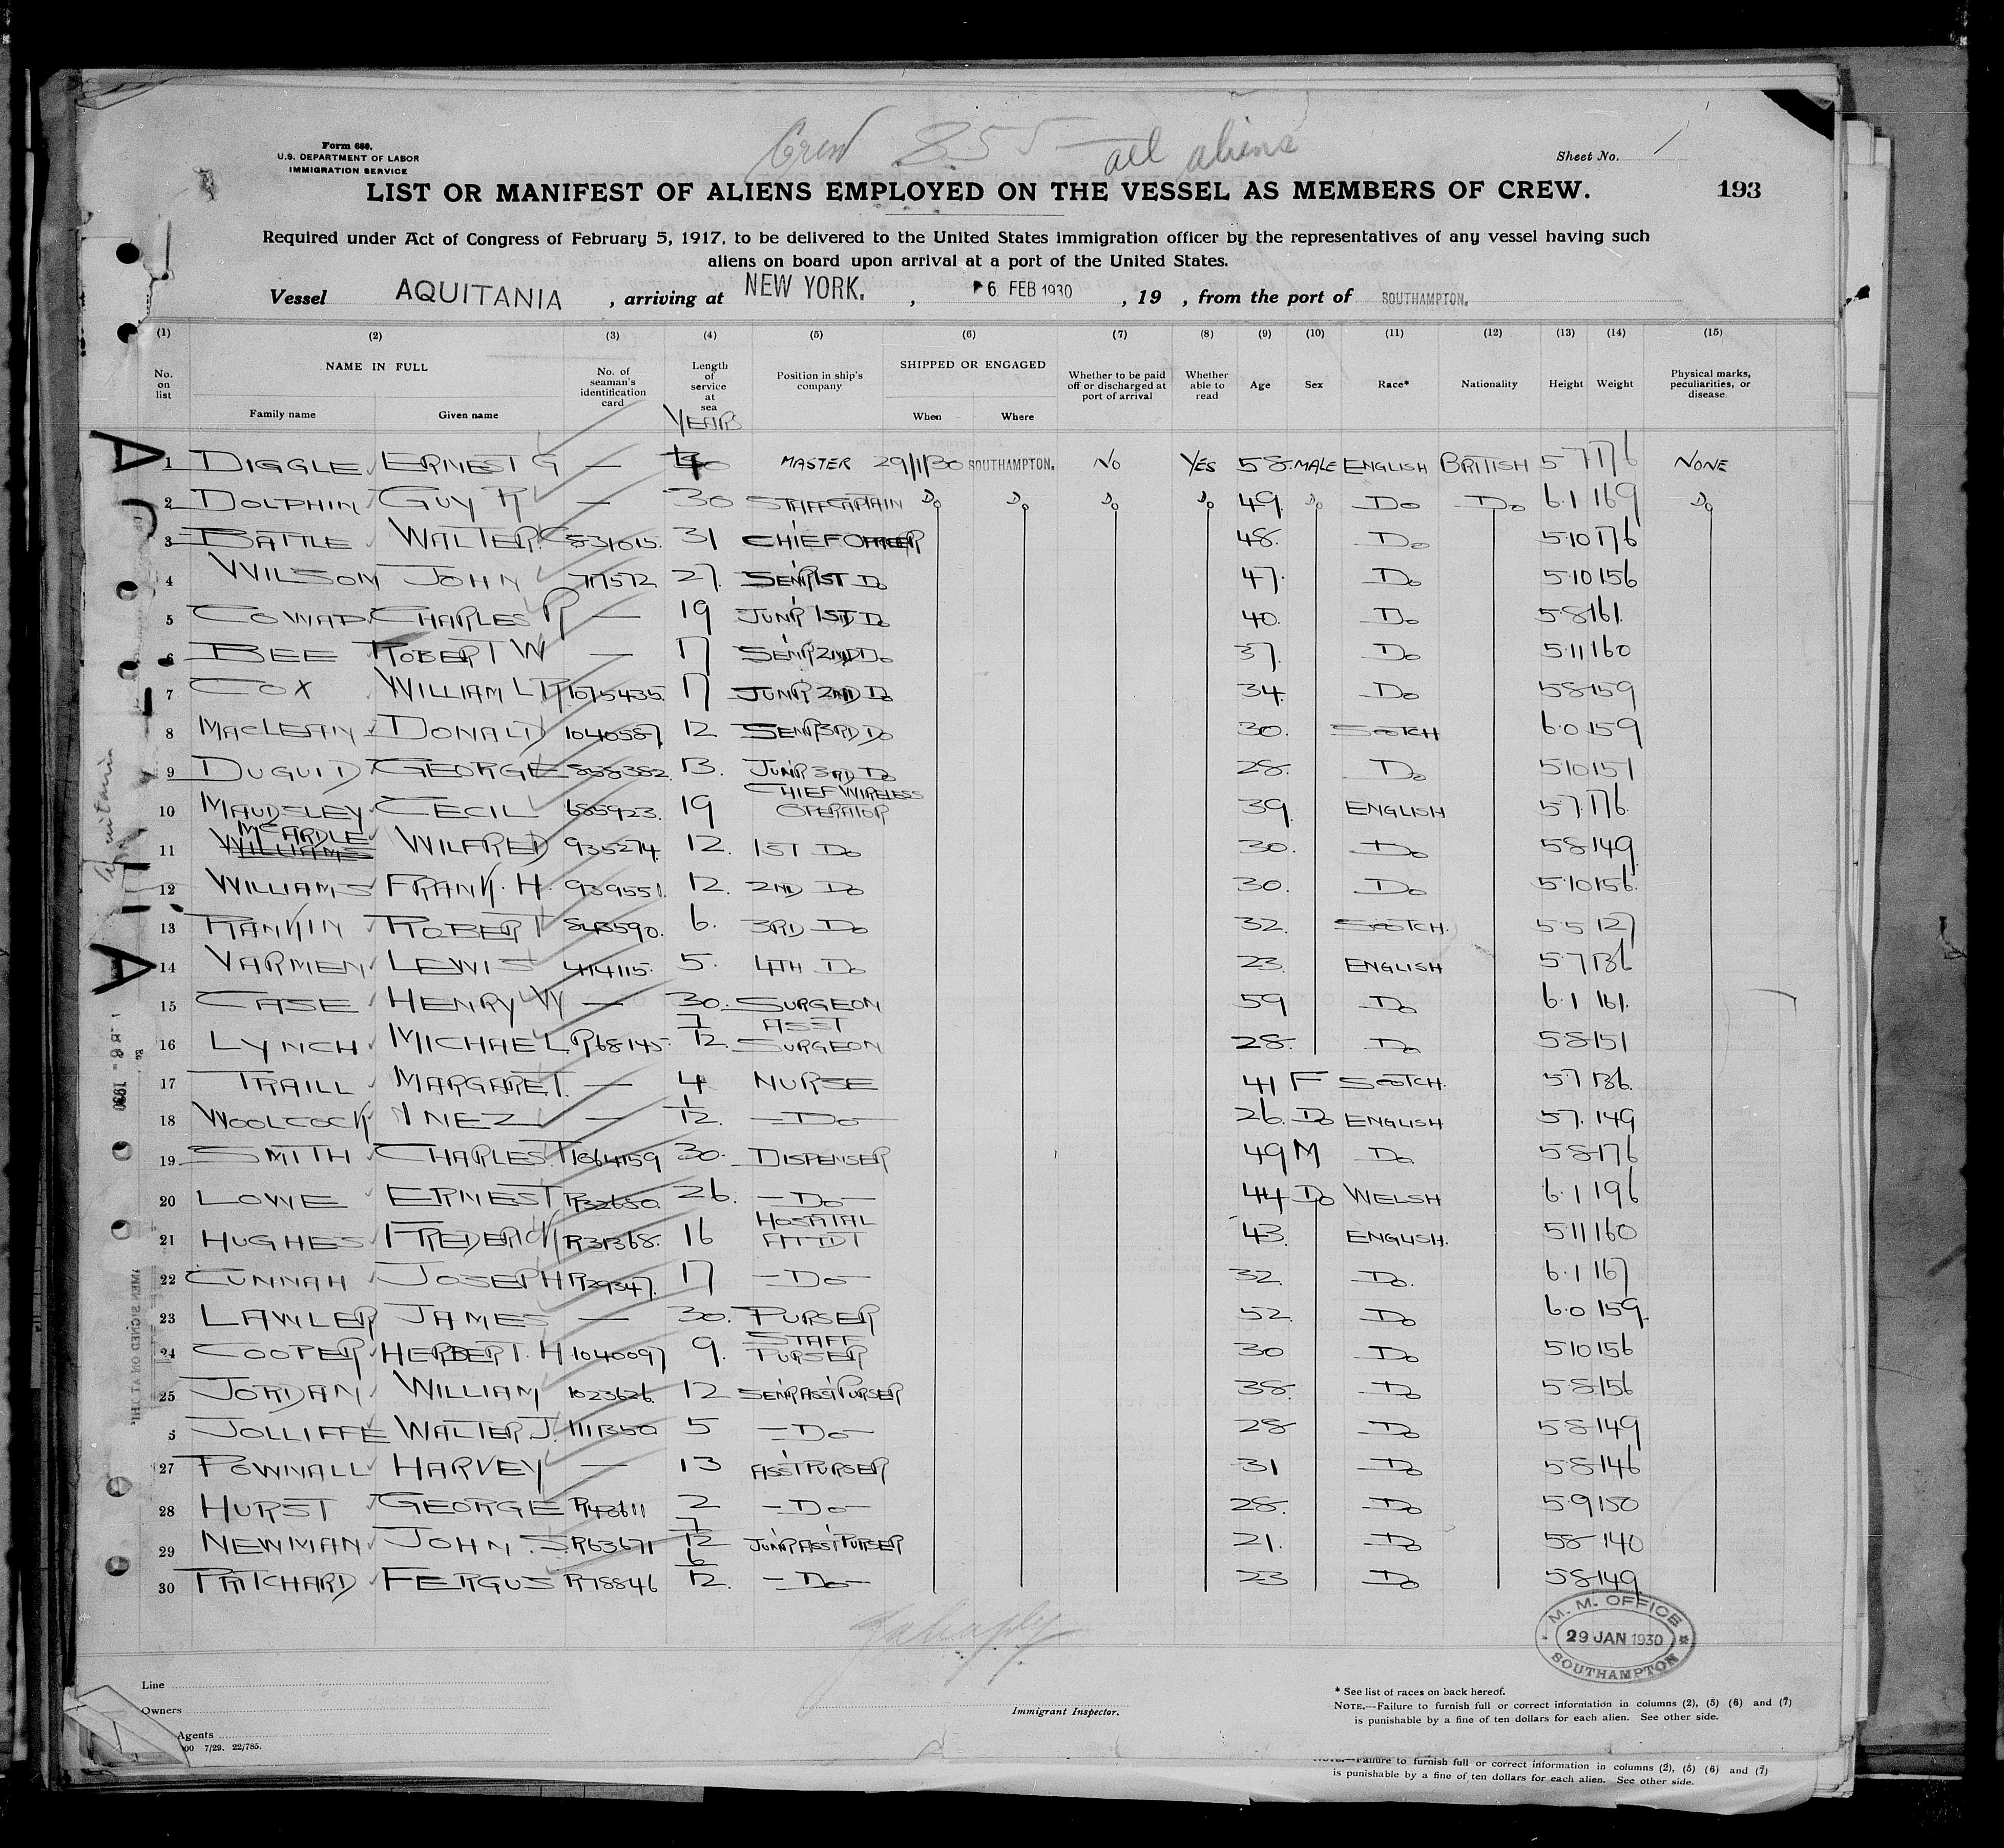 Crew 855 all aliens
Form 680.
U.S. DEPARTMENT OF LABOR
IMMIGRATION SERVICE
Sheet No. 1
LIST OR MANIFEST OF ALIENS EMPLOYED ON THE VESSEL AS MEMBERS OF CREW.
193
Required under Act of Congress of February 5, 1917, to be delivered to the United States immigration officer by the representatives of any vessel having such
aliens on board upon arrival at a port of the United States.
Vessel AQUITANIA, arriving at NEW YORK., 6 FEB 1930, 19 , from the port of SOUTHAMPTON.
(1) (2) (3) (4) (5) (6) (7) (8) (9) (10) (11) (12) (13) (14) (15)
No. on list NAME IN FULL Family name Given name No. of seaman's identification card Length of service at sea YEARS Position in ship's company SHIPPED OR ENGAGED When Where Whether to be paid off or discharged at port of arrival Whether able to read Age Sex Race* Nationality Height Weight Physical marks, peculiarities, or disease
1 DIGGLE ERNEST G — MASTER 29/1/30 SOUTHAMPTON. NO YES 58. MALE ENGLISH BRITISH 5 7 176 NONE
2 DOLPHIN GUY R — 30 STAFF CAPTAIN Do Do Do Do 49. Do Do Do 6.1 169 Do
3 BATTLE WALTER C 831615. 31 CHIEF OFFICER 48. Do 5.10 176
4 WILSON JOHN 717572 27. SENR 1ST Do 47. Do 5.10 156
5 COWAP CHARLES R — 19 JUNR 1ST Do 40. Do 5.8 161.
6 BEE ROBERT W — 17 SENR 2ND Do 37. Do 5.11 160
7 COX WILLIAM L R 1075435. 17 JUNR 2ND Do 34. Do 5.8 159
8 MACLEAN DONALD 1040587 12 SENR 3RD Do 30. SCOTCH 6.0 159
9 DUGUID GEORGE 858382. 13. JUNR 3RD Do 28. Do 5.10 151
10 MAUDSLEY CECIL 685923. 19 CHIEF WIRELESS OPERATOR 39. ENGLISH 5.7 176.
11 WILLIAMS MCARDLE WILFRED 935274. 12. 1ST Do 30. Do 5.8 149
12 WILLIAMS FRANK. H. 939551. 12. 2ND Do 30. Do 5.10 156.
13 RANKIN ROBERT 6. 3RD Do 32. SCOTCH. 5 5 127
14 VARMEN LEWIS 414115. 5. 4TH Do 23. ENGLISH 5.7 136
15 CASE HENRY W — 30. SURGEON 59 Do 6.1 161.
16 LYNCH MICHAEL R68145. 7/12. ASST SURGEON 28. Do 5.8 151
17 TRAILL MARGARET. — 4 NURSE 41 F SCOTCH. 5.7 136.
18 WOOLCOCK INEZ — 1/12. —Do— 26. Do ENGLISH 5.7. 149
19 SMITH CHARLES. T 1064159 30. DISPENSER 49 M Do 5.8 176
20 LOWE ERNEST R32650. 26. —Do— 44 Do WELSH 6.1 196
21 HUGHES FREDERICK R31368. 16 HOSPITAL ATTDT 43. ENGLISH. 5.11 160
22 CUNNAH JOSEPH R29347. 17 —Do— 32. Do. 6.1 167
23 LAWLER JAMES — 30. PURSER 52. Do 6.0 159.
24 COOPER HERBERT. H 1040097 9. STAFF PURSER 30 Do 5.10 156
25 JORDAN WILLIAM 1023626. 12 SENR ASST PURSER 38. Do 5.8 156
JOLLIFFE WALTER J. 1111350 5 —Do— 28 Do 5.8 149
27 POWNALL HARVEY — 13 ASST PURSER 31 Do 5.8 146
28 HURST GEORGE R43611 2 —Do— 28. Do 5.9 150
29 NEWMAN JOHN. S. R63671 7/12 JUNR ASST PURSER 21. Do 5.8 140
30 PRITCHARD FERGUS R78846 6/12. —Do— 23 Do 5.8 149
Aquitania
M. M. OFFICE
29 JAN 1930
SOUTHAMPTON
Line
Owners
Agents
7/29. 22/785.
Immigrant Inspector.
* See list of races on back hereof.
NOTE.—Failure to furnish full or correct information in columns (2), (5) (6) and (7)
is punishable by a fine of ten dollars for each alien. See other side.
NOTE.—Failure to furnish full or correct information in columns (2), (5) (6) and (7)
is punishable by a fine of ten dollars for each alien. See other side.